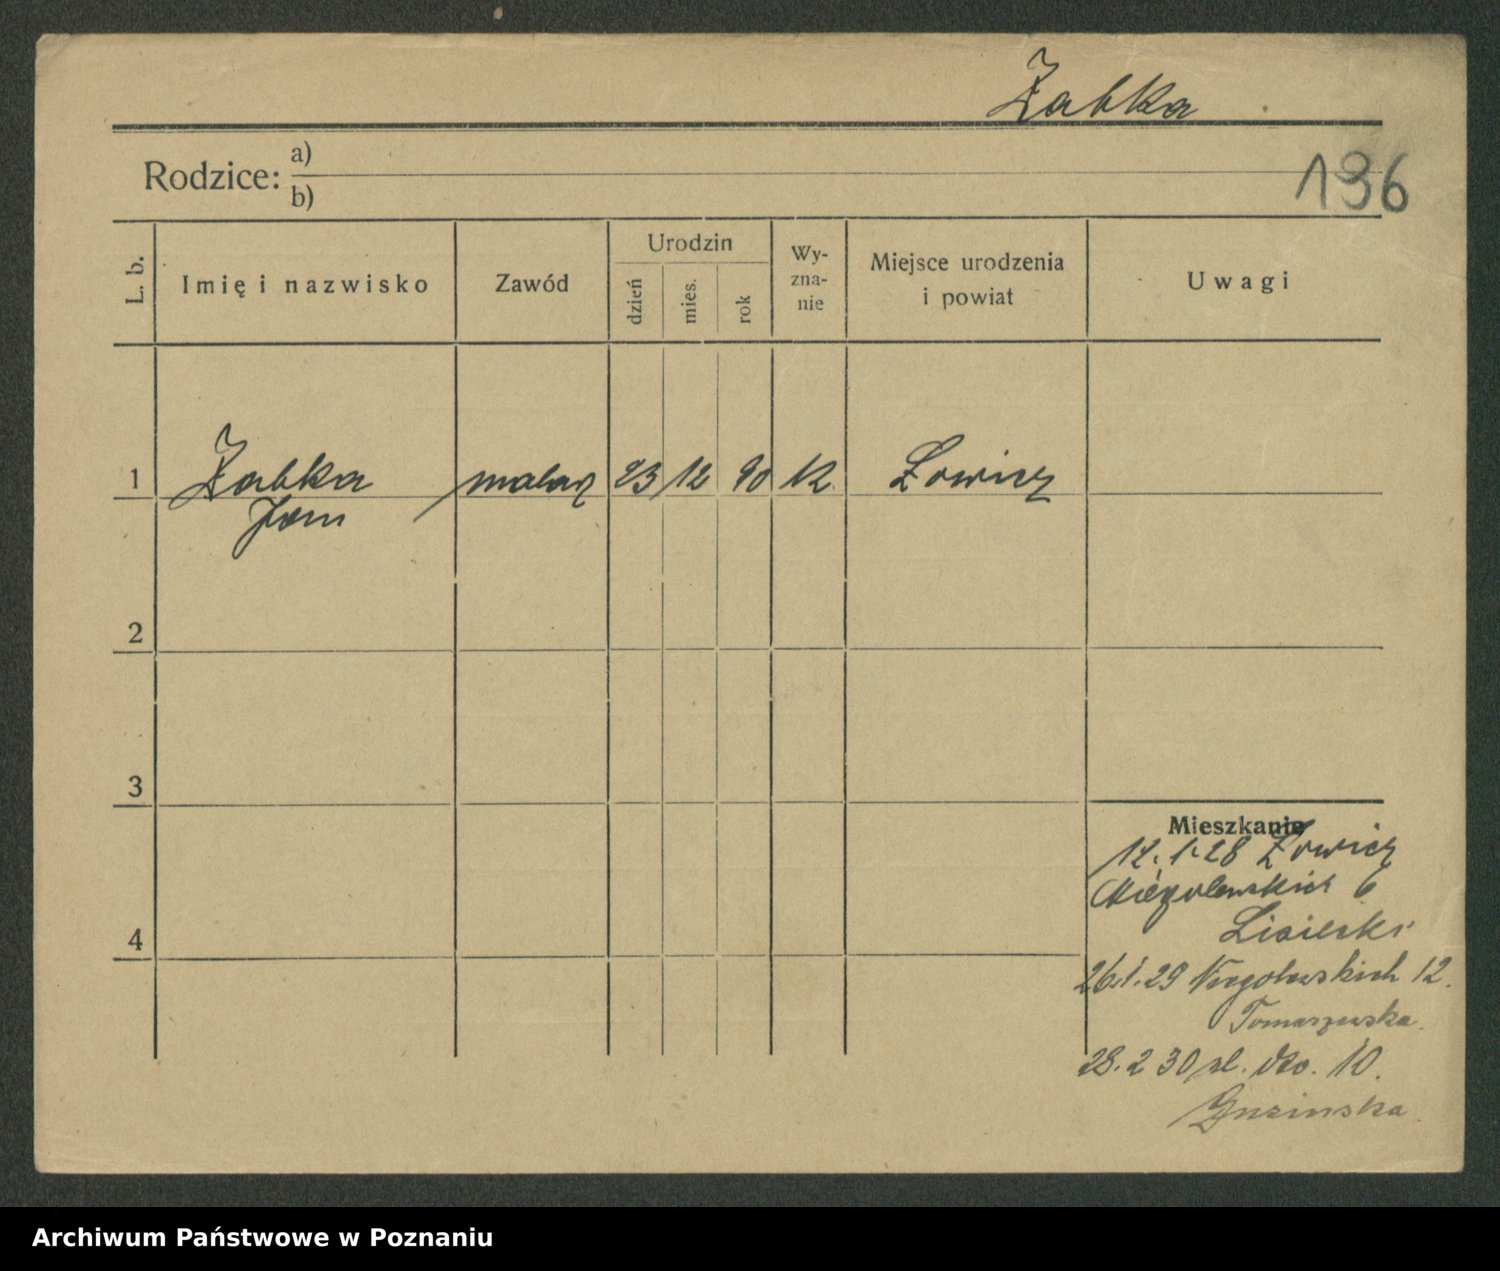 Żabka
Rodzice: a)
b)
196
L. b.
Imię i nazwisko
Zawód
Urodzin
dzień
mies.
rok
Wy-
zna-
nie
Miejsce urodzenia
i powiat
Uwagi
1 Żabka malarz 23 12 90 k Łowicz
Jan
2
3
4
Mieszkanie
12.1.28 Łowicz
Niegolewskich 6
Lisiecki
26.1.29 Niegolewskich 12.
Tomaszewska
28.2 30 dto. 10.
Archiwum Państwowe w Poznaniu